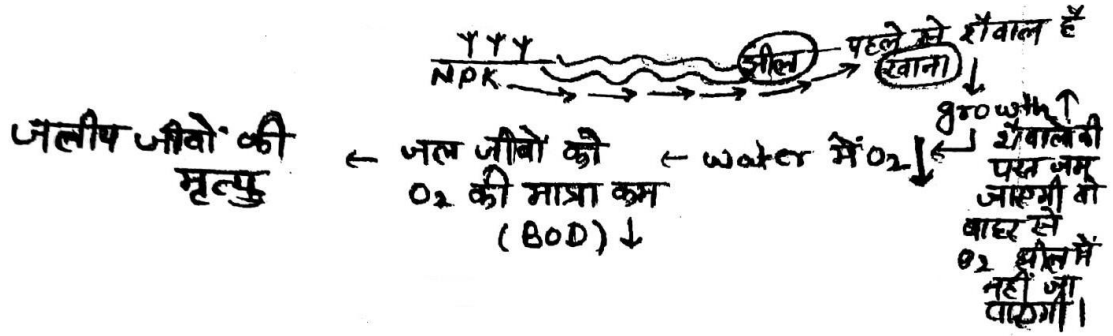 NPK
झील
पहले से शैवाल है
खाना
growth ↑
शैवालो की
परत जम
जाएगी तो
बाहर से
O₂ झील में
नहीं जा
पाएगी।
← water में O₂ ↓ ←
← जल जीवों को
O₂ की मात्रा कम
(BOD) ↓
जलीय जीवों की
मृत्यु